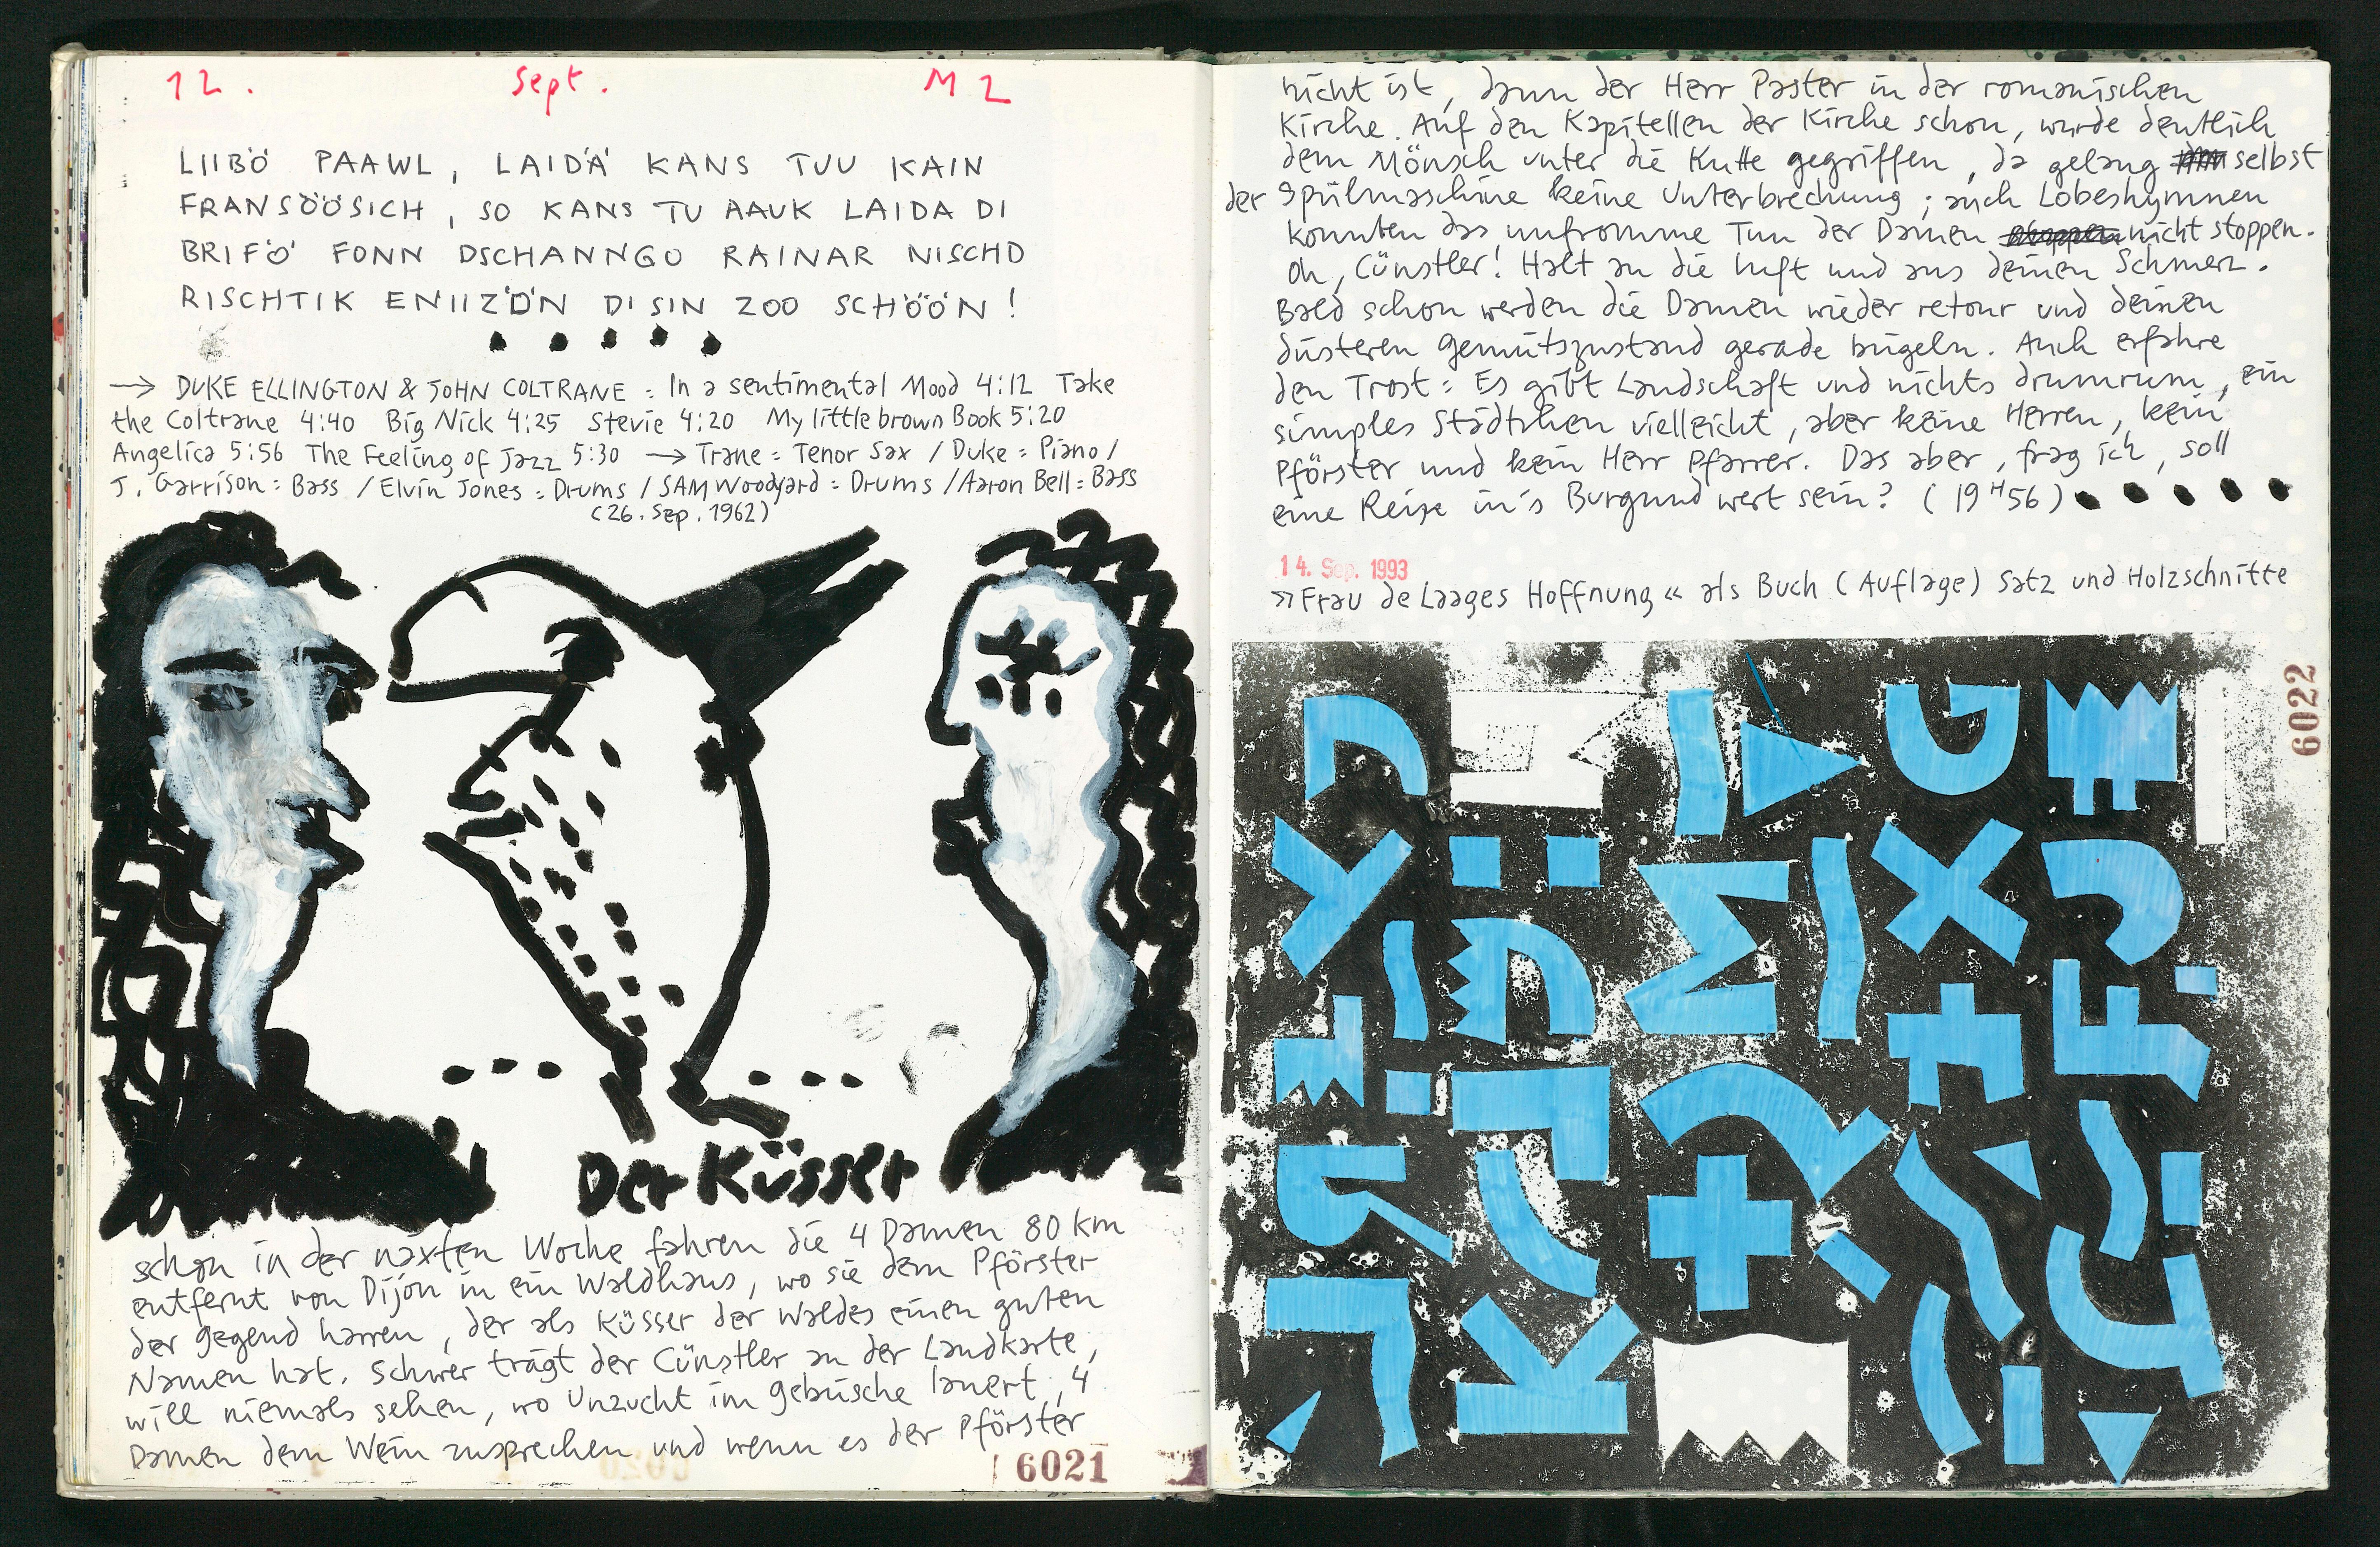 12. Sept. M2
LIIBÖ PAAWL, LAIDÄ KANS TUU KAIN
FRANSÖÖSICH, SO KANS TU AAUK LAIDA DI
BRIFÖ FONN DSCHANNGO RAINAR NISCHD
RISCHTIK ENIIZÖN DI SIN ZOO SCHÖÖN!
→ DUKE ELLINGTON & JOHN COLTRANE: In a sentimental Mood 4:12 Take
the Coltrane 4:40 Big Nick 4:25 Stevie 4:20 My little brown Book 5:20
Angelica 5:56 The Feeling of Jazz 5:30 → Trane: Tenor Sax / Duke: Piano /
J. Garrison: Bass / Elvin Jones: Drums / SAM Woodyard: Drums / Aaron Bell: Bass
(26. Sep. 1962)
Der Küsser
schon in der näxten Woche fahren die 4 Damen 80 km
entfernt von Dijon in ein Waldhaus, wo sie dem Pförster
der Gegend harren, der als Küsser der Waldes einen guten
Namen hat. Schwer trägt der Cünstler an der Landkarte,
will niemals sehen, wo Unzucht im Gebüsche lauert, 4
Damen dem Wein zusprechen und wenn es der Pförster
6021
nicht ist, dann der Herr Paster in der romanischen
Kirche. Auf den Kapitellen der Kirche schon, wurde deutlich
dem Mönsch unter die Kutte gegriffen, da gelang selbst
der Spülmaschine keine Unterbrechung; auch Lobeshymnen
konnten das unfromme Tun der Damen nicht stoppen.
Oh, Cünstler! Halt an die Luft und aus deinen Schmerz.
Bald schon werden die Damen wieder retour und deinen
düsteren Gemütszustand gerade bügeln. Auch erfahre
den Trost: Es gibt Landschaft und nichts drumrum, ein
simples Städtchen vielleicht, aber keine Herren, kein
Pförster und kein Herr Pfarrer. Das aber, frag ich, soll
eine Reise in's Burgund wert sein? (19H56)
14. Sep. 1993
»Frau de Laages Hoffnung« als Buch (Auflage) Satz und Holzschnitte
6022